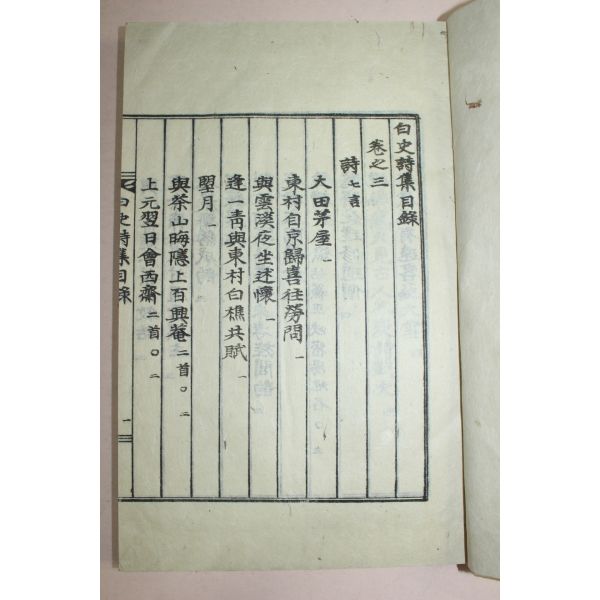 白史詩集目錄
卷之三
詩 七言
大田茅屋 一
東村自京歸喜往勞問 一
與雲漢夜坐述懷 一
逢一靑與東村白樵共賦 一
望月 一
與茶山晦隱上百興菴 二首○ 二
上元翌日會西齋 二首○ 二
白史詩集目錄 一